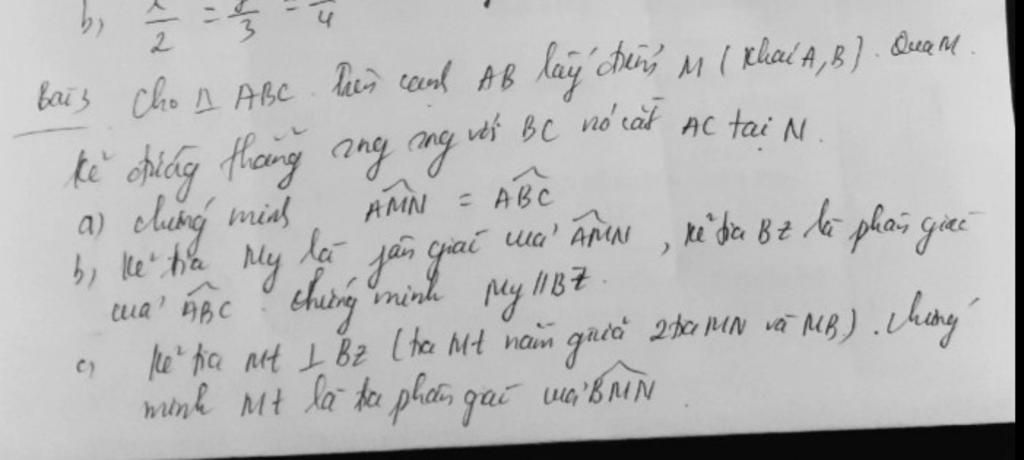 b, x/2 = y/3 = /4
Bài 3 Cho △ ABC. Trên cạnh AB lấy điểm M (khác A, B). Qua M.
kẻ đường thẳng sng sng với BC nó cắt AC tại N.
a) chứng minh \widehat{AMN} = \widehat{ABC}
b, kẻ tia My là fân giác của \widehat{AMN}, kẻ tia Bz là phân giác
của \widehat{ABC}. chứng minh My // Bz.
c, kẻ tia Mt ⊥ Bz (tia Mt nằm giữa 2 tia MN và MB). Chứng
minh Mt là tia phân giác của \widehat{BMN}